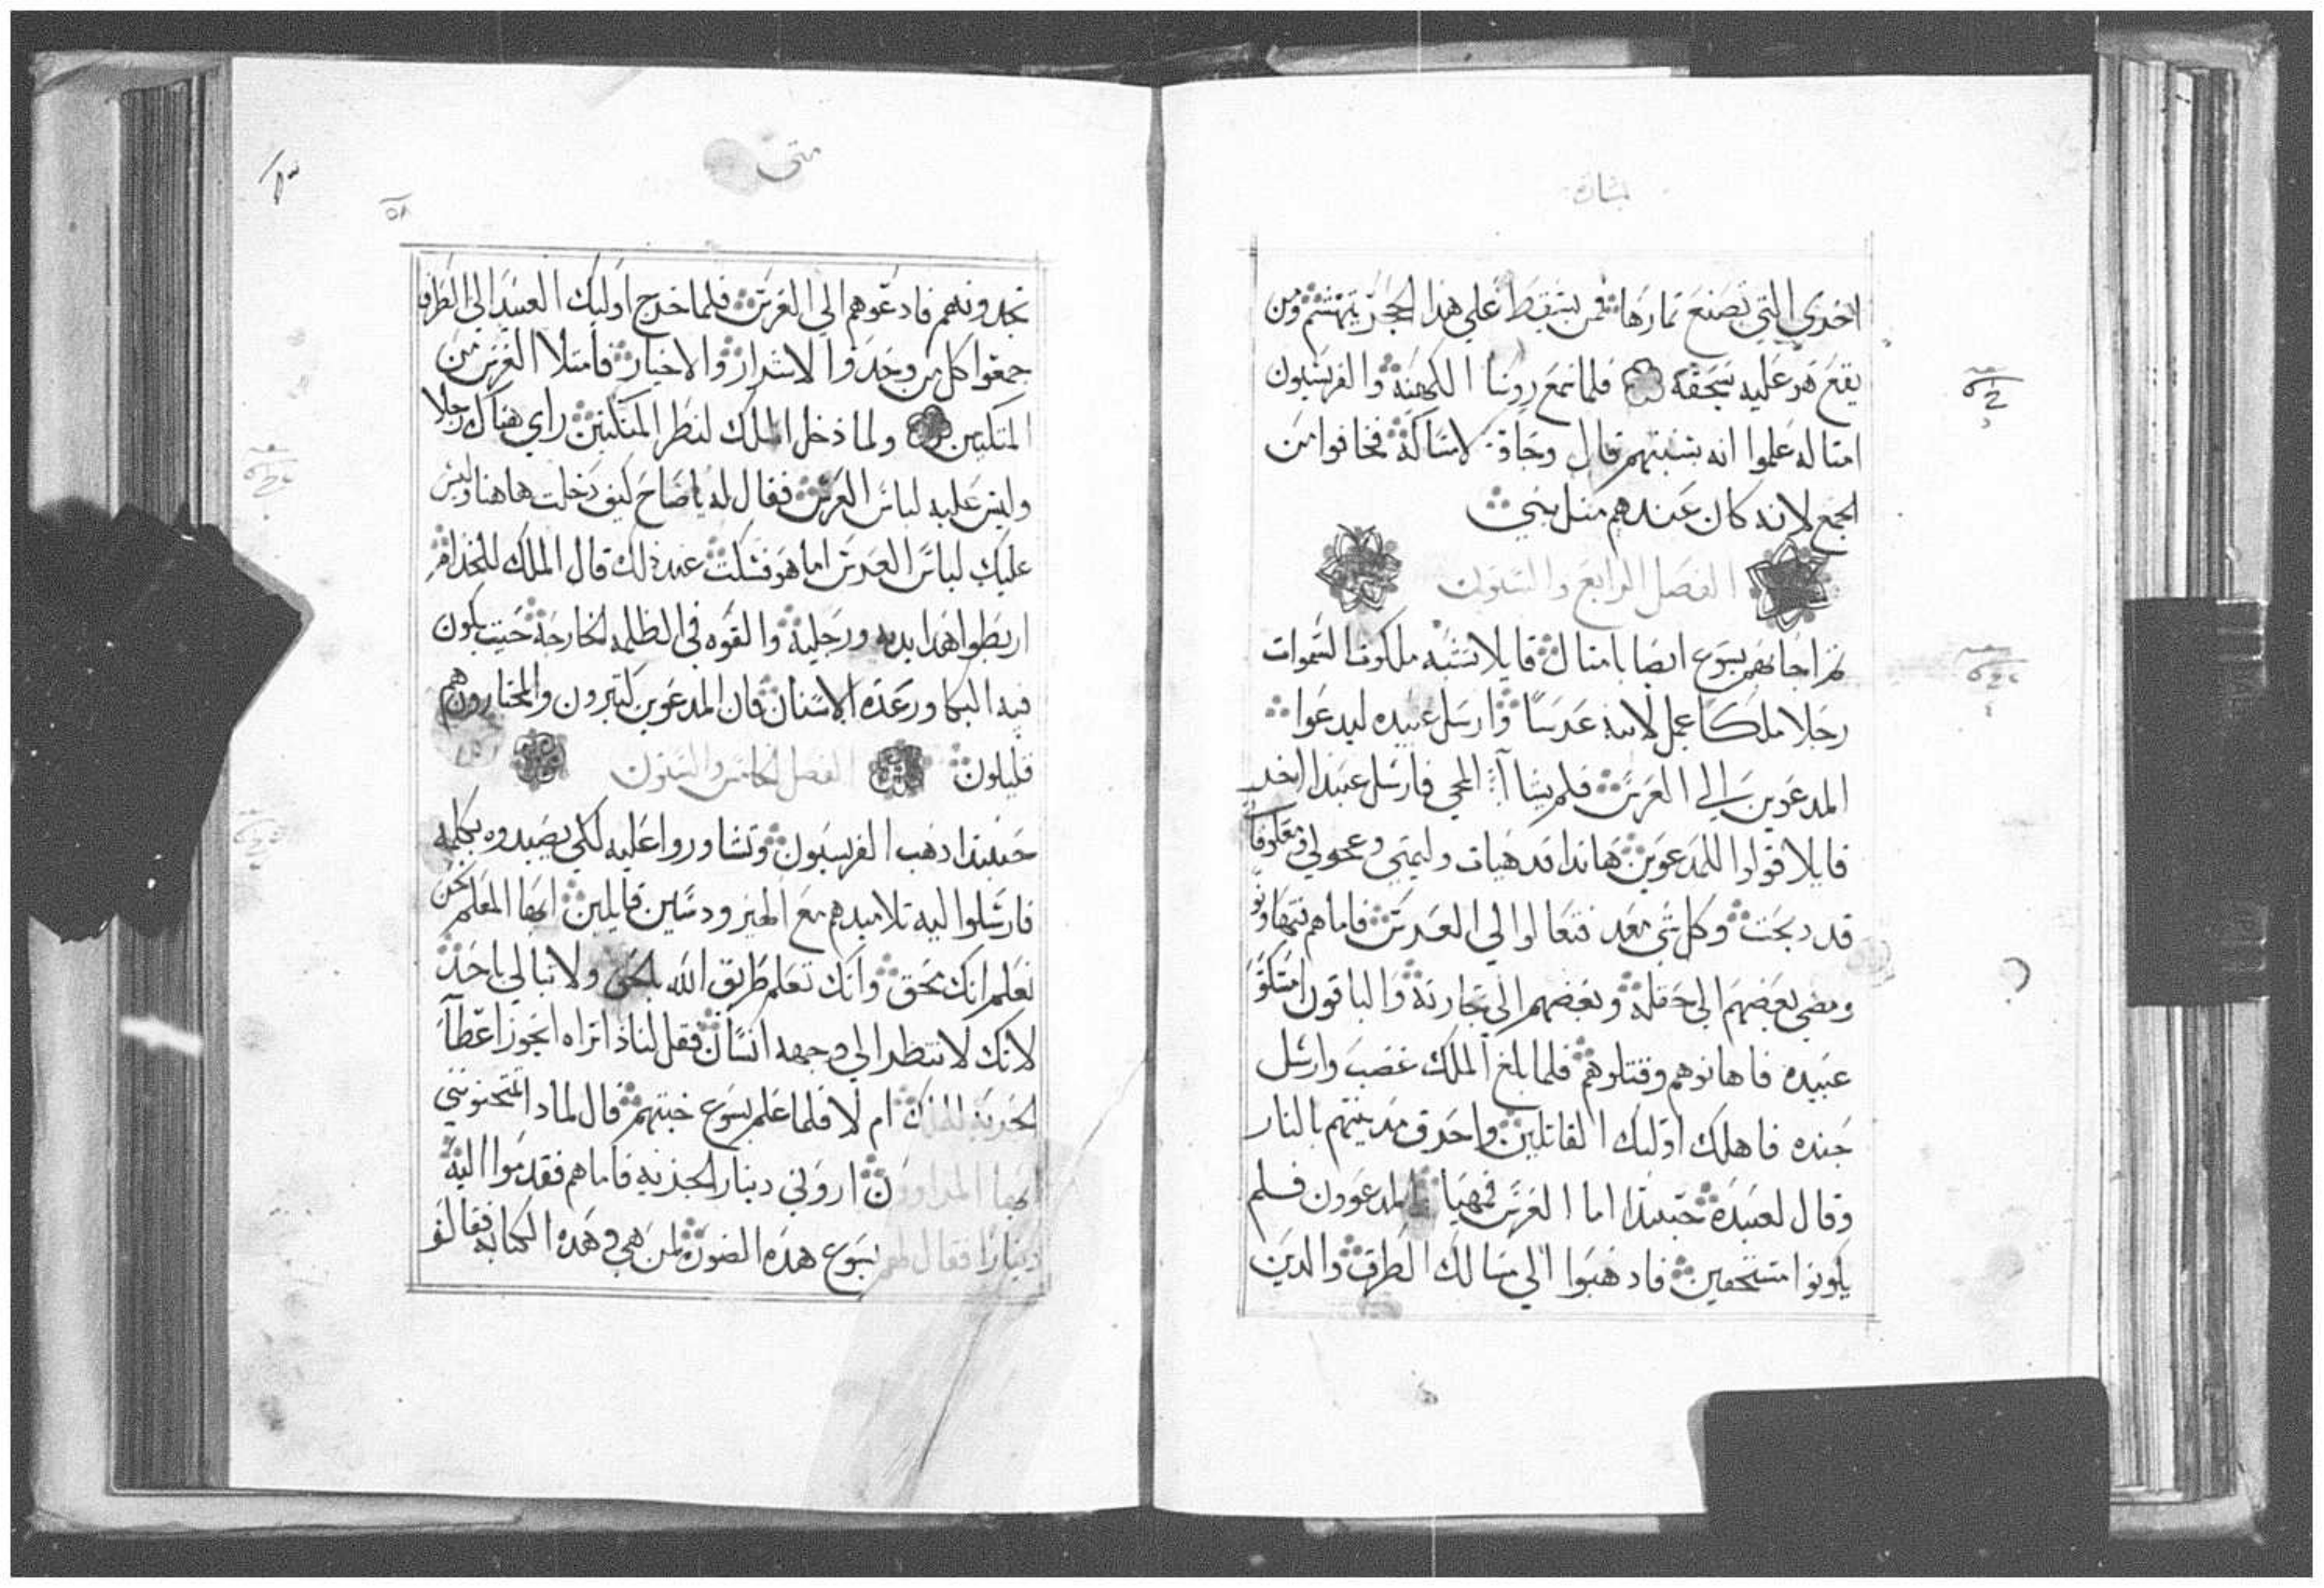 بشارة
اخري التي تصنع ثمارها فمن يسقط علي هذا الحجر يتهشم ومن
يقع هو عليه يسحقه فلما سمع روسا الكهنه والفريسيون
امثاله علموا انه بسببهم قال وجاة لامساكه فخافوا من
الجمع لانه كان عندهم مثل نبي
الفصل الرابع والستون
ثم اجابهم يسوع ايضا بامثال قايلا تشبه ملكوت السموات
رجلا ملكا عمل لابنه عرسا وارسل عبيده ليدعوا
المدعوين الي العرس فلم يشاا المجي فارسل عبيدا اخر
قايلا قولوا للمدعوين هاندا قد هيات وليمتي وعجولي ومعلوفا
قد دبحت وكل شي معد فتعالوا الي العرس فاما هم فتهاونو
ومضي بعضهم الي حقله وبعضهم الي تجارته والباقون امسكو
عبيده فاهانوهم وقتلوهم فلما بلغ الملك غضب وارسل
جنده فاهلك اوليك القاتلين واحرق مدينتهم بالنار
وقال لعبيده حينيدا اما العرس فمهيا المدعوون فلم
يكونوا مستحقين فادهبوا الي مسالك الطرق والدين
متي
٥٨
تجدونهم فادعوهم الي العرس فلما خرج اوليك العبيد الي الطرق
جمعوا كل من وجدوا الاشرار والاخيار فامتلا العرس من
المتكيين ولما دخل الملك لنظر المتكيين راي هناك رجلا
وليس عليه لباس العرس فقال له ياصاح كيف دخلت هاهنا وليس
عليك لباس العرس اما هو فسكت عند دلك قال الملك للخدام
اربطوا هدا بديه ورجليه والقوه في الظلمه الخارجه حيث يكون
فيه البكا ورعده الاسنان فان المدعوين كتيرون والمختارون هم
قليلون الفصل الخامس والستون
حينيدا دهب الفريسيون وتشاوروا عليه لكي يصيدوه بكلمه
فارسلوا اليه تلاميدهم مع الهيرودسين قايلين ايها المعلم نحن
نعلم انك محق وانك تعلم طريق الله بالحق ولا تبالي باحد
لانك لا تنتظر الي وجهه انسان فقل لنا ذا تراه ايجوز اعطاا
الجزيه للملك ام لا فلما علم يسوع خبتهم قال لماد اتمتحنونني
ايها المراوون اروني دينار الجزيه فاما هم فقدموا اليه
دينارا فقال لهم يسوع هده الصوره لمن هي وهده الكتابه فقالو